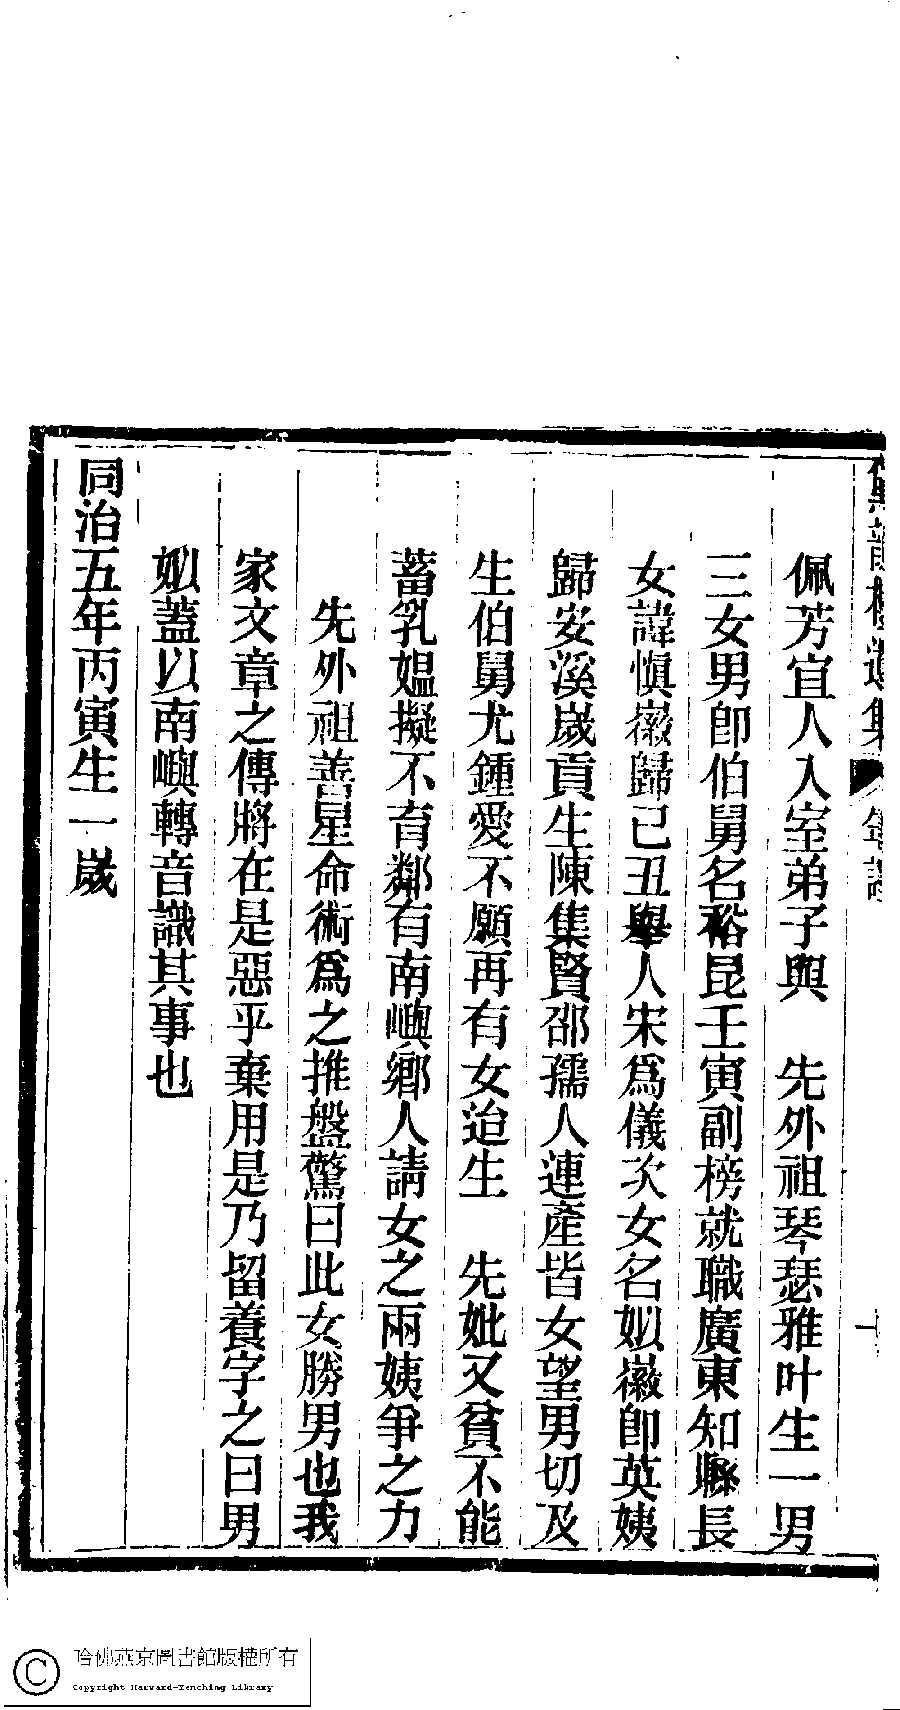 樓遺集 年譜 一
佩芳宜人入室弟子與　先外祖琴瑟雅叶生一男
三女男卽伯舅名裕昆壬寅副榜就職廣東知縣長
女諱愼徽歸己丑舉人宋爲儀次女名姒徽卽英姨
歸安溪歲貢生陳集賢邵孺人連產皆女望男切及
生伯舅尤鍾愛不願再有女迨生　先妣又貧不能
蓄乳媼擬不育鄰有南嶼鄉人請女之兩姨爭之力
先外祖善星命術爲之推盤驚曰此女勝男也我
家文章之傳將在是惡乎棄用是乃留養字之曰男
姒蓋以南嶼轉音識其事也
同治五年丙寅生一歲
哈佛燕京圖書館版權所有
Copyright Harvard-Yenching Library